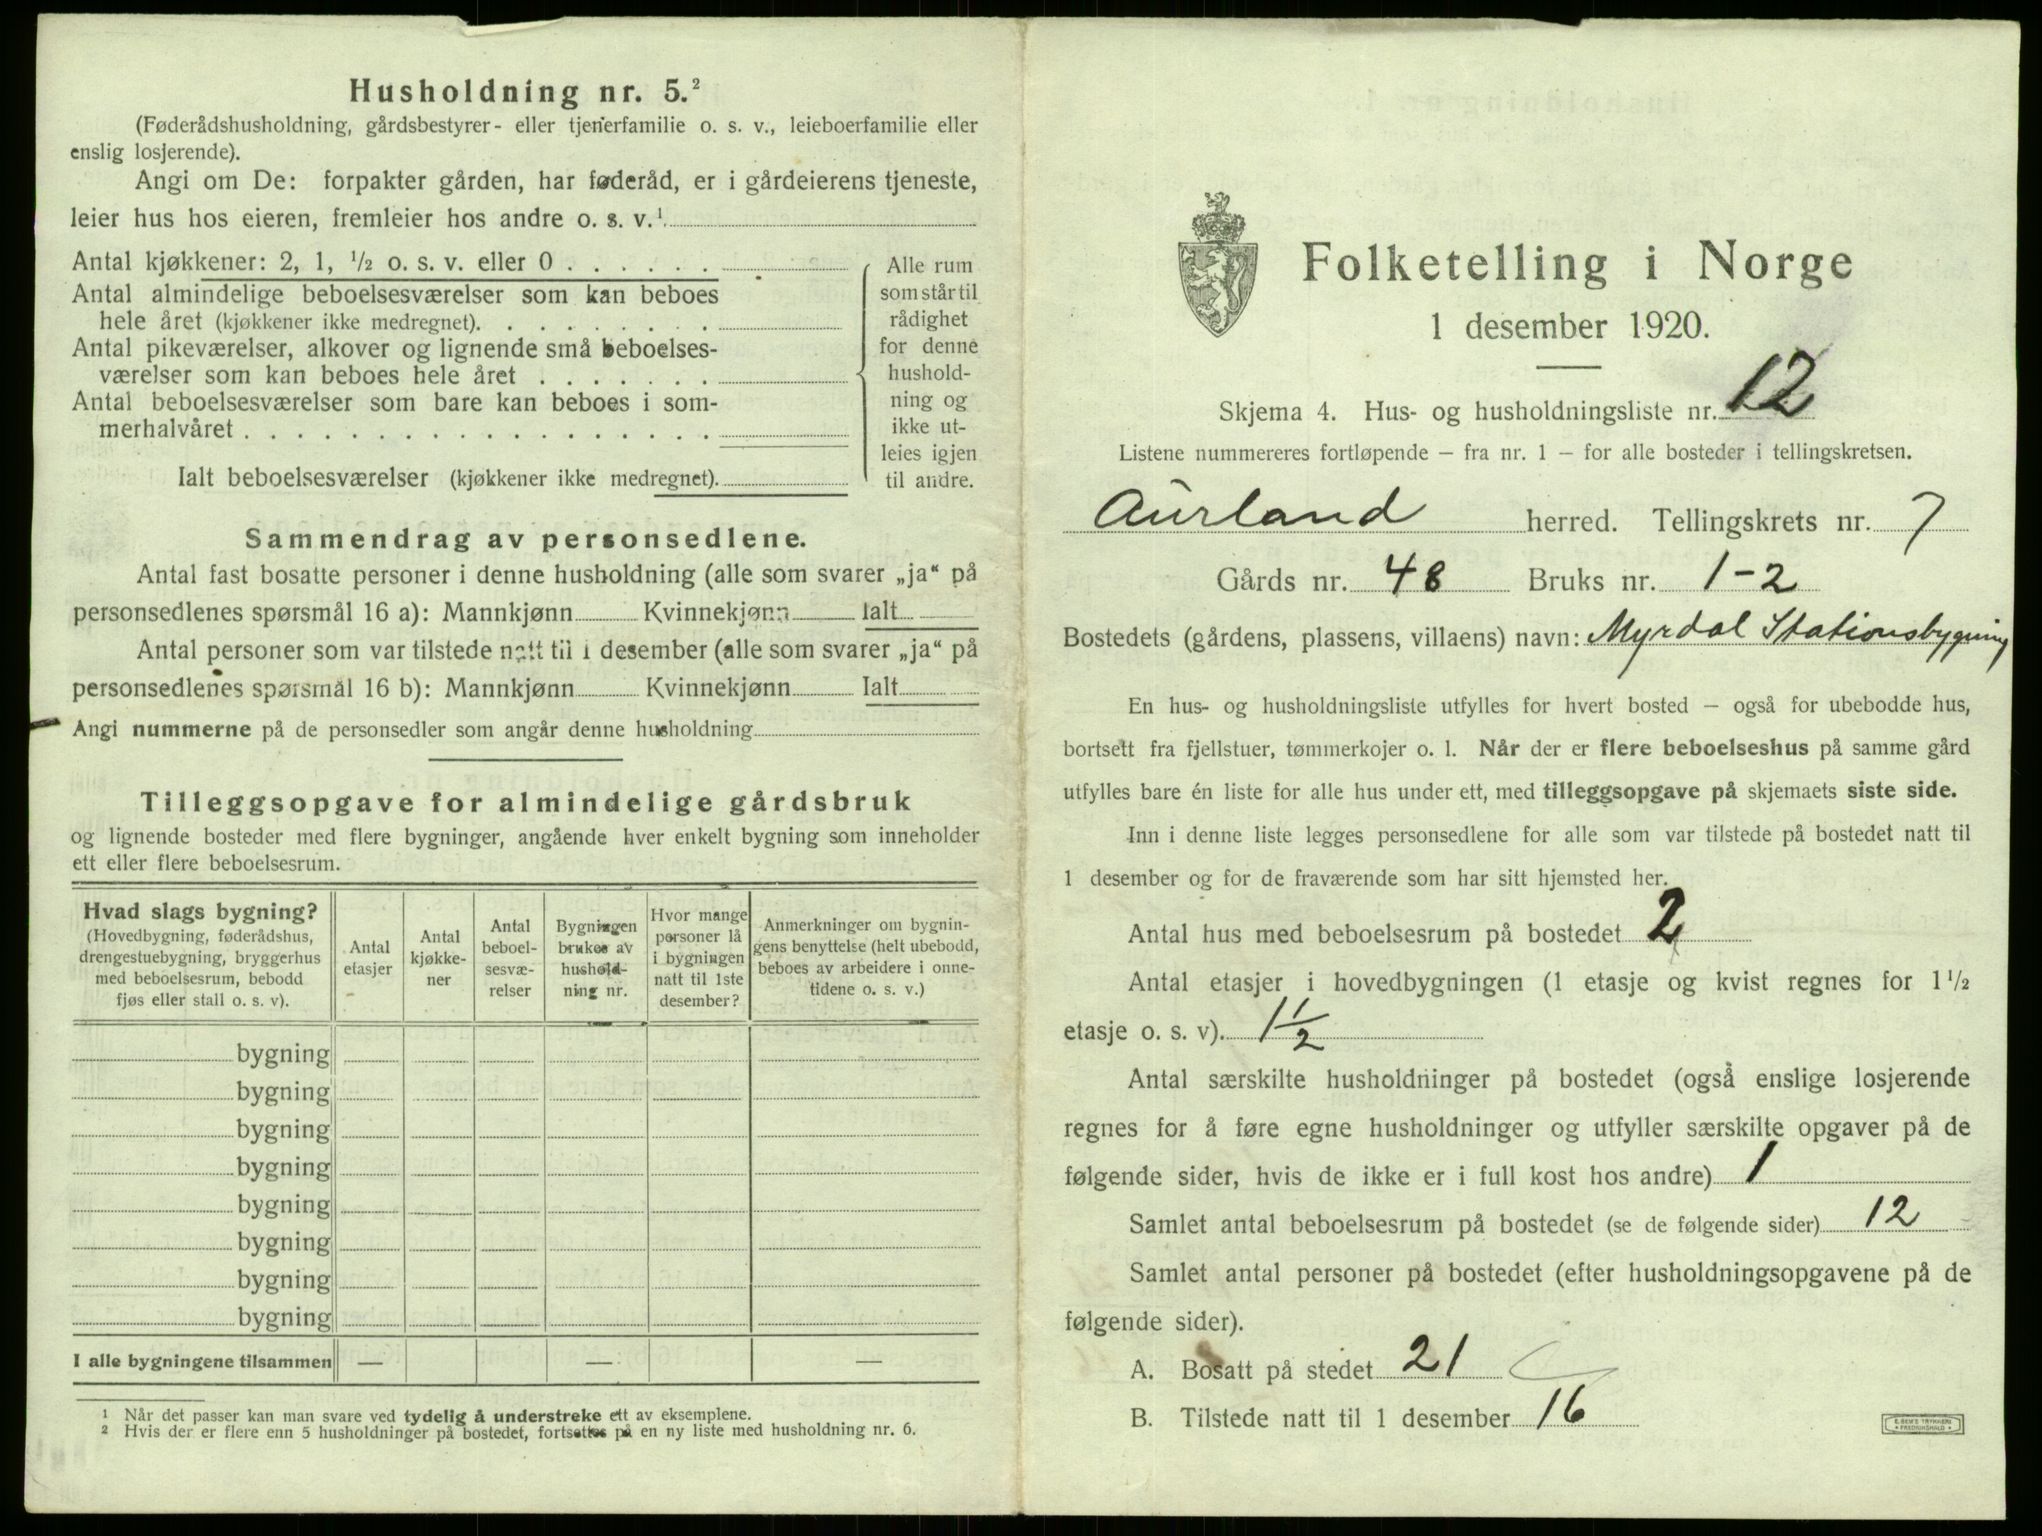 Husholdning nr. 5.²
(Føderådshusholdning, gårdsbestyrer- eller tjenerfamilie o. s. v., leieboerfamilie eller
enslig losjerende).
Angi om De: forpakter gården, har føderåd, er i gårdeierens tjeneste,
leier hus hos eieren, fremleier hos andre o. s. v.¹
Antal kjøkkener: 2, 1, ½ o. s. v. eller 0 . . . . . .
Antal almindelige beboelsesværelser som kan beboes
hele året (kjøkkener ikke medregnet). . . . . . . . .
Antal pikeværelser, alkover og lignende små beboelses-
værelser som kan beboes hele året . . . . . . .
Antal beboelsesværelser som bare kan beboes i som-
merhalvåret . . . . . . . . . . . . . . . . . .
Ialt beboelsesværelser (kjøkkener ikke medregnet).
Alle rum
som står til
rådighet
for denne
hushold-
ning og
ikke ut-
leies igjen
til andre.
Sammendrag av personsedlene.
Antal fast bosatte personer i denne husholdning (alle som svarer „ja“ på
personsedlenes spørsmål 16 a): Mannkjønn Kvinnekjønn Ialt
Antal personer som var tilstede natt til 1 desember (alle som svarer „ja“ på
personsedlenes spørsmål 16 b): Mannkjønn Kvinnekjønn Ialt
Angi nummerne på de personsedler som angår denne husholdning
Tilleggsopgave for almindelige gårdsbruk
og lignende bosteder med flere bygninger, angående hver enkelt bygning som inneholder
ett eller flere beboelsesrum.
Hvad slags bygning?
(Hovedbygning, føderådshus,
drengestuebygning, bryggerhus
med beboelsesrum, bebodd
fjøs eller stall o. s. v).
Antal
etasjer
Antal
kjøkke-
ner
Antal
beboel-
sesvæ-
relser
Bygningen
brukes av
hushold-
ning nr.
Hvor mange
personer lå
i bygningen
natt til 1ste
desember?
Anmerkninger om bygnin-
gens benyttelse (helt ubebodd,
beboes av arbeidere i onne-
tidene o. s. v.)
bygning
bygning
bygning
bygning
bygning
bygning
bygning
bygning
I alle bygningene tilsammen — — —
¹ Når det passer kan man svare ved tydelig å understreke ett av eksemplene.
² Hvis der er flere enn 5 husholdninger på bostedet, fortsettes på en ny liste med husholdning nr. 6.
Folketelling i Norge
1 desember 1920.
Skjema 4. Hus- og husholdningsliste nr. 12
Listene nummereres fortløpende — fra nr. 1 — for alle bosteder i tellingskretsen.
Aurland herred. Tellingskrets nr. 7
Gårds nr. 48 Bruks nr. 1-2
Bostedets (gårdens, plassens, villaens) navn: Myrdal Stationsbygning
En hus- og husholdningsliste utfylles for hvert bosted — også for ubebodde hus,
bortsett fra fjellstuer, tømmerkojer o. l. Når der er flere beboelseshus på samme gård
utfylles bare én liste for alle hus under ett, med tilleggsopgave på skjemaets siste side.
Inn i denne liste legges personsedlene for alle som var tilstede på bostedet natt til
1 desember og for de fraværende som har sitt hjemsted her.
Antal hus med beboelsesrum på bostedet 2
Antal etasjer i hovedbygningen (1 etasje og kvist regnes for 1 ½
etasje o. s. v). 1 ½
Antal særskilte husholdninger på bostedet (også enslige losjerende
regnes for å føre egne husholdninger og utfyller særskilte opgaver på de
følgende sider, hvis de ikke er i full kost hos andre) 1
Samlet antal beboelsesrum på bostedet (se de følgende sider) 12
Samlet antal personer på bostedet (efter husholdningsopgavene på de
følgende sider).
A. Bosatt på stedet 21
B. Tilstede natt til 1 desember 16